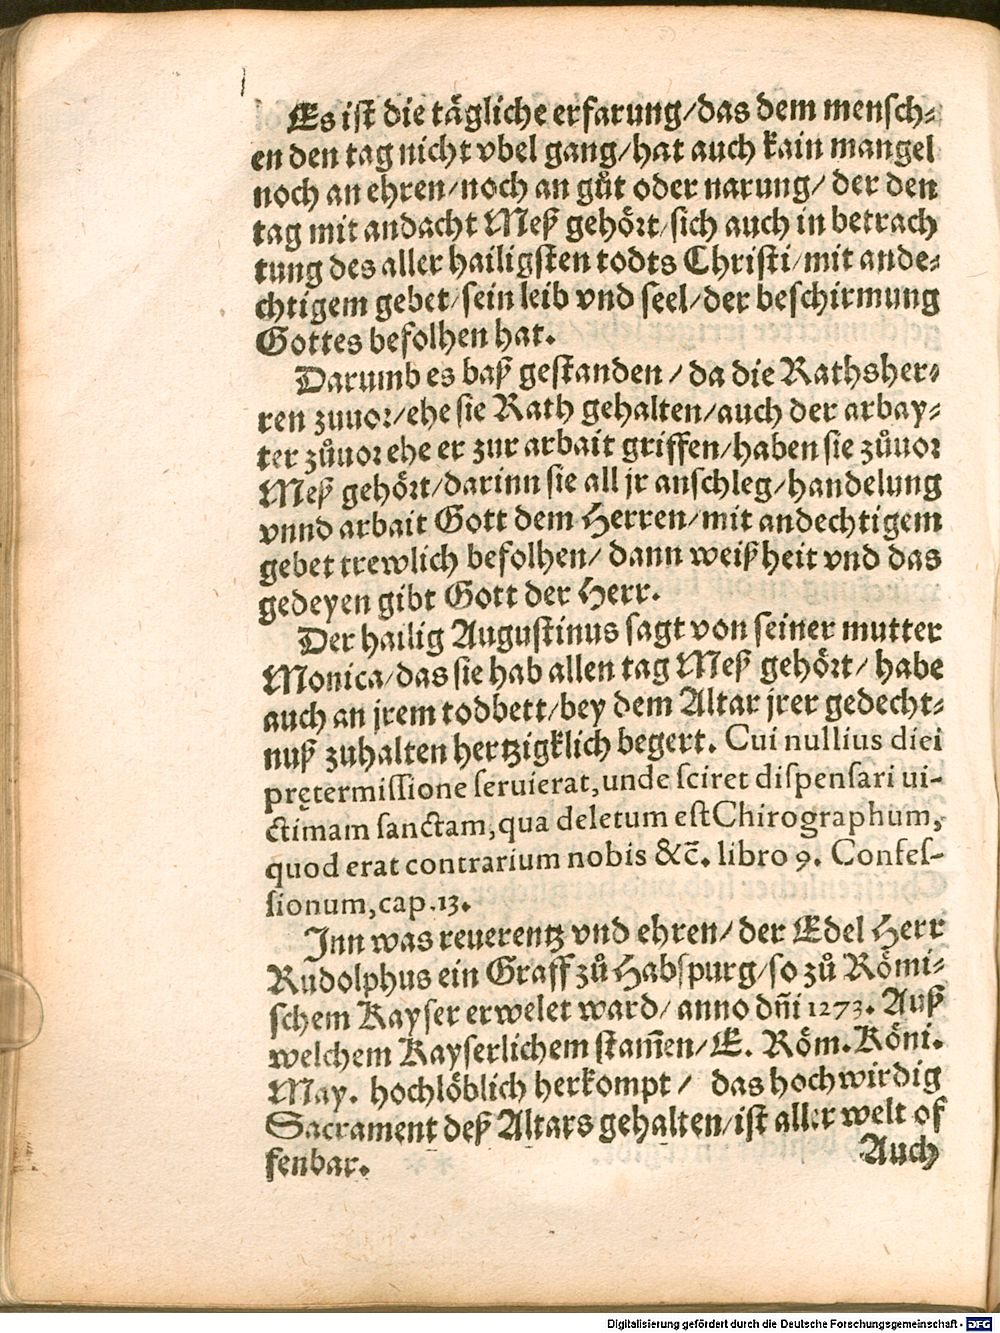 Es ist die tägliche erfarung/das dem mensch⸗
en den tag nicht vbel gang/hat auch kain mangel
noch an ehren/noch an gůt oder narung/ der den
tag mit andacht Meß gehört/sich auch in betrach
tung des aller hailigsten todts Christi/mit ande⸗
chtigem gebet/sein leib vnd seel/der beschirmung
Gottes befolhen hat.
Darumb es baß gestanden / da die Rathsher⸗
ren zuuor/ehe sie Rath gehalten/auch der arbay⸗
ter zůuor ehe er zur arbait griffen/haben sie zůuor
Meß gehört/darinn sie all jr anschleg/handelung
vnnd arbait Gott dem Herren/mit andechtigem
gebet trewlich befolhen/ dann weißheit vnd das
gedeyen gibt Gott der Herr.
Der hailig Augustinus sagt von seiner mutter
Monica/das sie hab allen tag Meß gehört/ habe
auch an jrem todbett/bey dem Altar jrer gedecht⸗
nuß zuhalten hertzigklich begert. Cui nullius diei
prętermissione seruierat, unde sciret dispensari ui-
ctimam sanctam, qua deletum est Chirographum,
quod erat contrarium nobis &c̄. libro 9. Confes-
sionum, cap. 13.
Inn was reuerentz vnd ehren/ der Edel Herr
Rudolphus ein Graff zů Habspurg/so zů Römi⸗
schem Kayser erwelet ward/ anno dn̄i 1273. Auß
welchem Kayserlichem stam̄en/E. Röm. Köni.
May. hochlöblich herkompt / das hochwirdig
Sacrament deß Altars gehalten/ist aller welt of
fenbar.
Auch
Digitalisierung gefördert durch die Deutsche Forschungsgemeinschaft - DFG